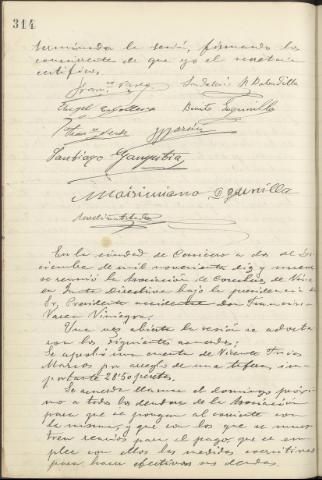 314
terminada la sesión, firmando los
concurrente de que yo el secretario
certifico.
Angel
Benito
Santiago
Maximiano
En la ciudad de Cenicero a dos de Di-
ciembre de mil novecientos diez y nueve
se reunió la Asociación de Cosecheros de Vino
en Junta Directiva bajo la presidencia del
Sr. Presidente accidental don Francisco
Varea Viniegra.
Una vez abierta la sesión se adopta-
ron los siguientes acuerdos:
Se aprobó una cuenta de Vicente Frías
Marcos por arreglo de una tufera, im-
portante 28'50 pesetas.
Se acuerda llamar el domingo próxi-
mo a todos los deudores de la Asociación
para que se pongan al corriente con
la misma, y que con los que se mues-
tren reacios para el pago, que se em-
plee con ellos las medidas coercitivas
para hacer efectivas sus deudas.